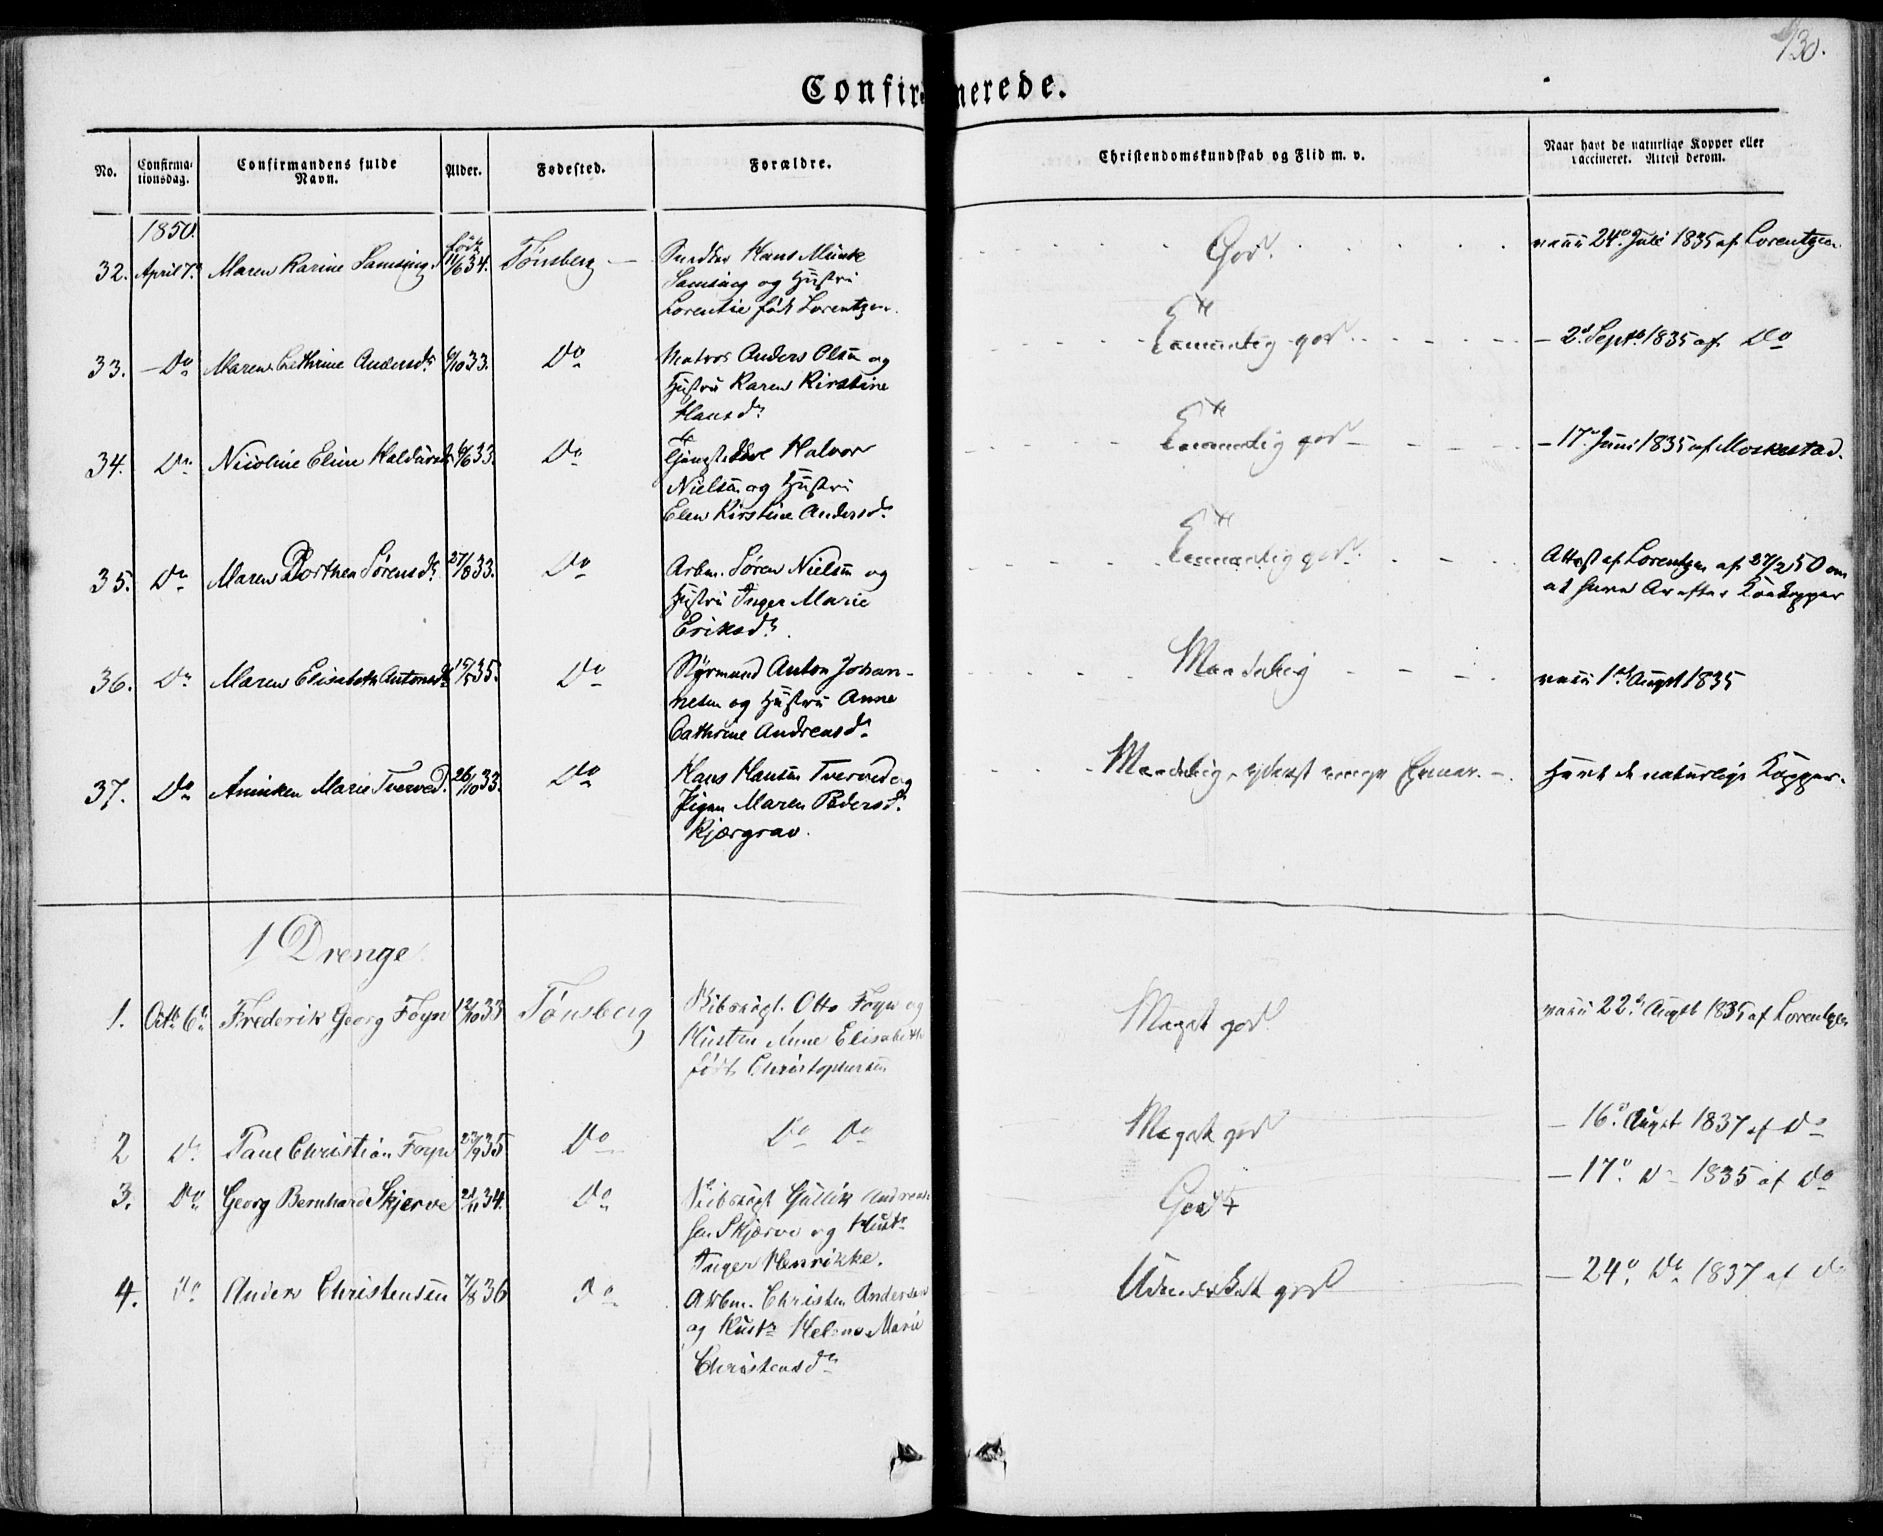 130.
Confirmerede.
No.
Confirma-
tionsdag.
Confirmandens fulde
Navn.
Alder.
Fødested.
Forældre.
Christendomskundskab og Flid m. v.
Naar havt de naturlige Kopper eller
vaccineret. Attest derom.
1850.
32. April 7. Maren Karine Samsing. født 11/6 34. Tønsberg Hans Munk
Samsing og Hustru
Lorentse født Lorentzen.
God. vacc 24de Juli 1835 af Lorentzen
33. Do Maren Cathrine Andersdr 9/10 33. Do Matros Anders Olsen og
Hustru Karen Kirstine
Hansdr
Temmelig god. - 2d Sept 1835 af Do
34. Do Nicoline Eline Halvorsdr 33. Do Halvor
Nielsen og Hustru
Elen Kirstine Andersdr
Temmelig god - 17de Juni 1835 af Moskestad.
35. Do Maren Dorthea Sørensdr 27/8 33. Do Arbm. Søren Nielsen og
Hustru Inger Marie
Eriksdr.
Temmelig god. Attest af Lorentzen af 27/2 50 om
at have Ar efter Kokopper
36. Do Maren Elisabeth Antonsdr 35. Do Styrmand Anton Johan-
nesen og Hustru Anne
Cathrine Andreasdr
Maadelig vacc 1ste Augst 1835
37. Do Anniken Marie Tverved. 26/10 33. Do Hans Hansen Tverved og
Pigen Maren Pedersdr.
Kjærgrav.
Maadelig, Havt de naturlige Kopper.
1 Drenge
1. Octb 6te Frederik Georg Foyn 12/10 33 Tønsberg Skibscapt. Otto Foyn og
Hustru Anne Elisabeth
født Christophersen
Meget god vacc 22de Augst 1835 af Lorentzen
2 Do Paul Christian Foyn 27/9 35 Do Do Do
Meget god - 16de Augst 1837 af Do
3. Do Georg Bernhard Skjerve 21/11 34. Do Skibscapt Gullik Andrea-
sen Skjerve og Hustr
Inger Henrikke.
Godt - 17de Do 1835 af Do
4. Do Anders Christensen 7/8 36 Do Arbm. Christen Andersen
og Hustr Helene Marie
Christensdr
Udmærket god - 24de Do 1837 af Do